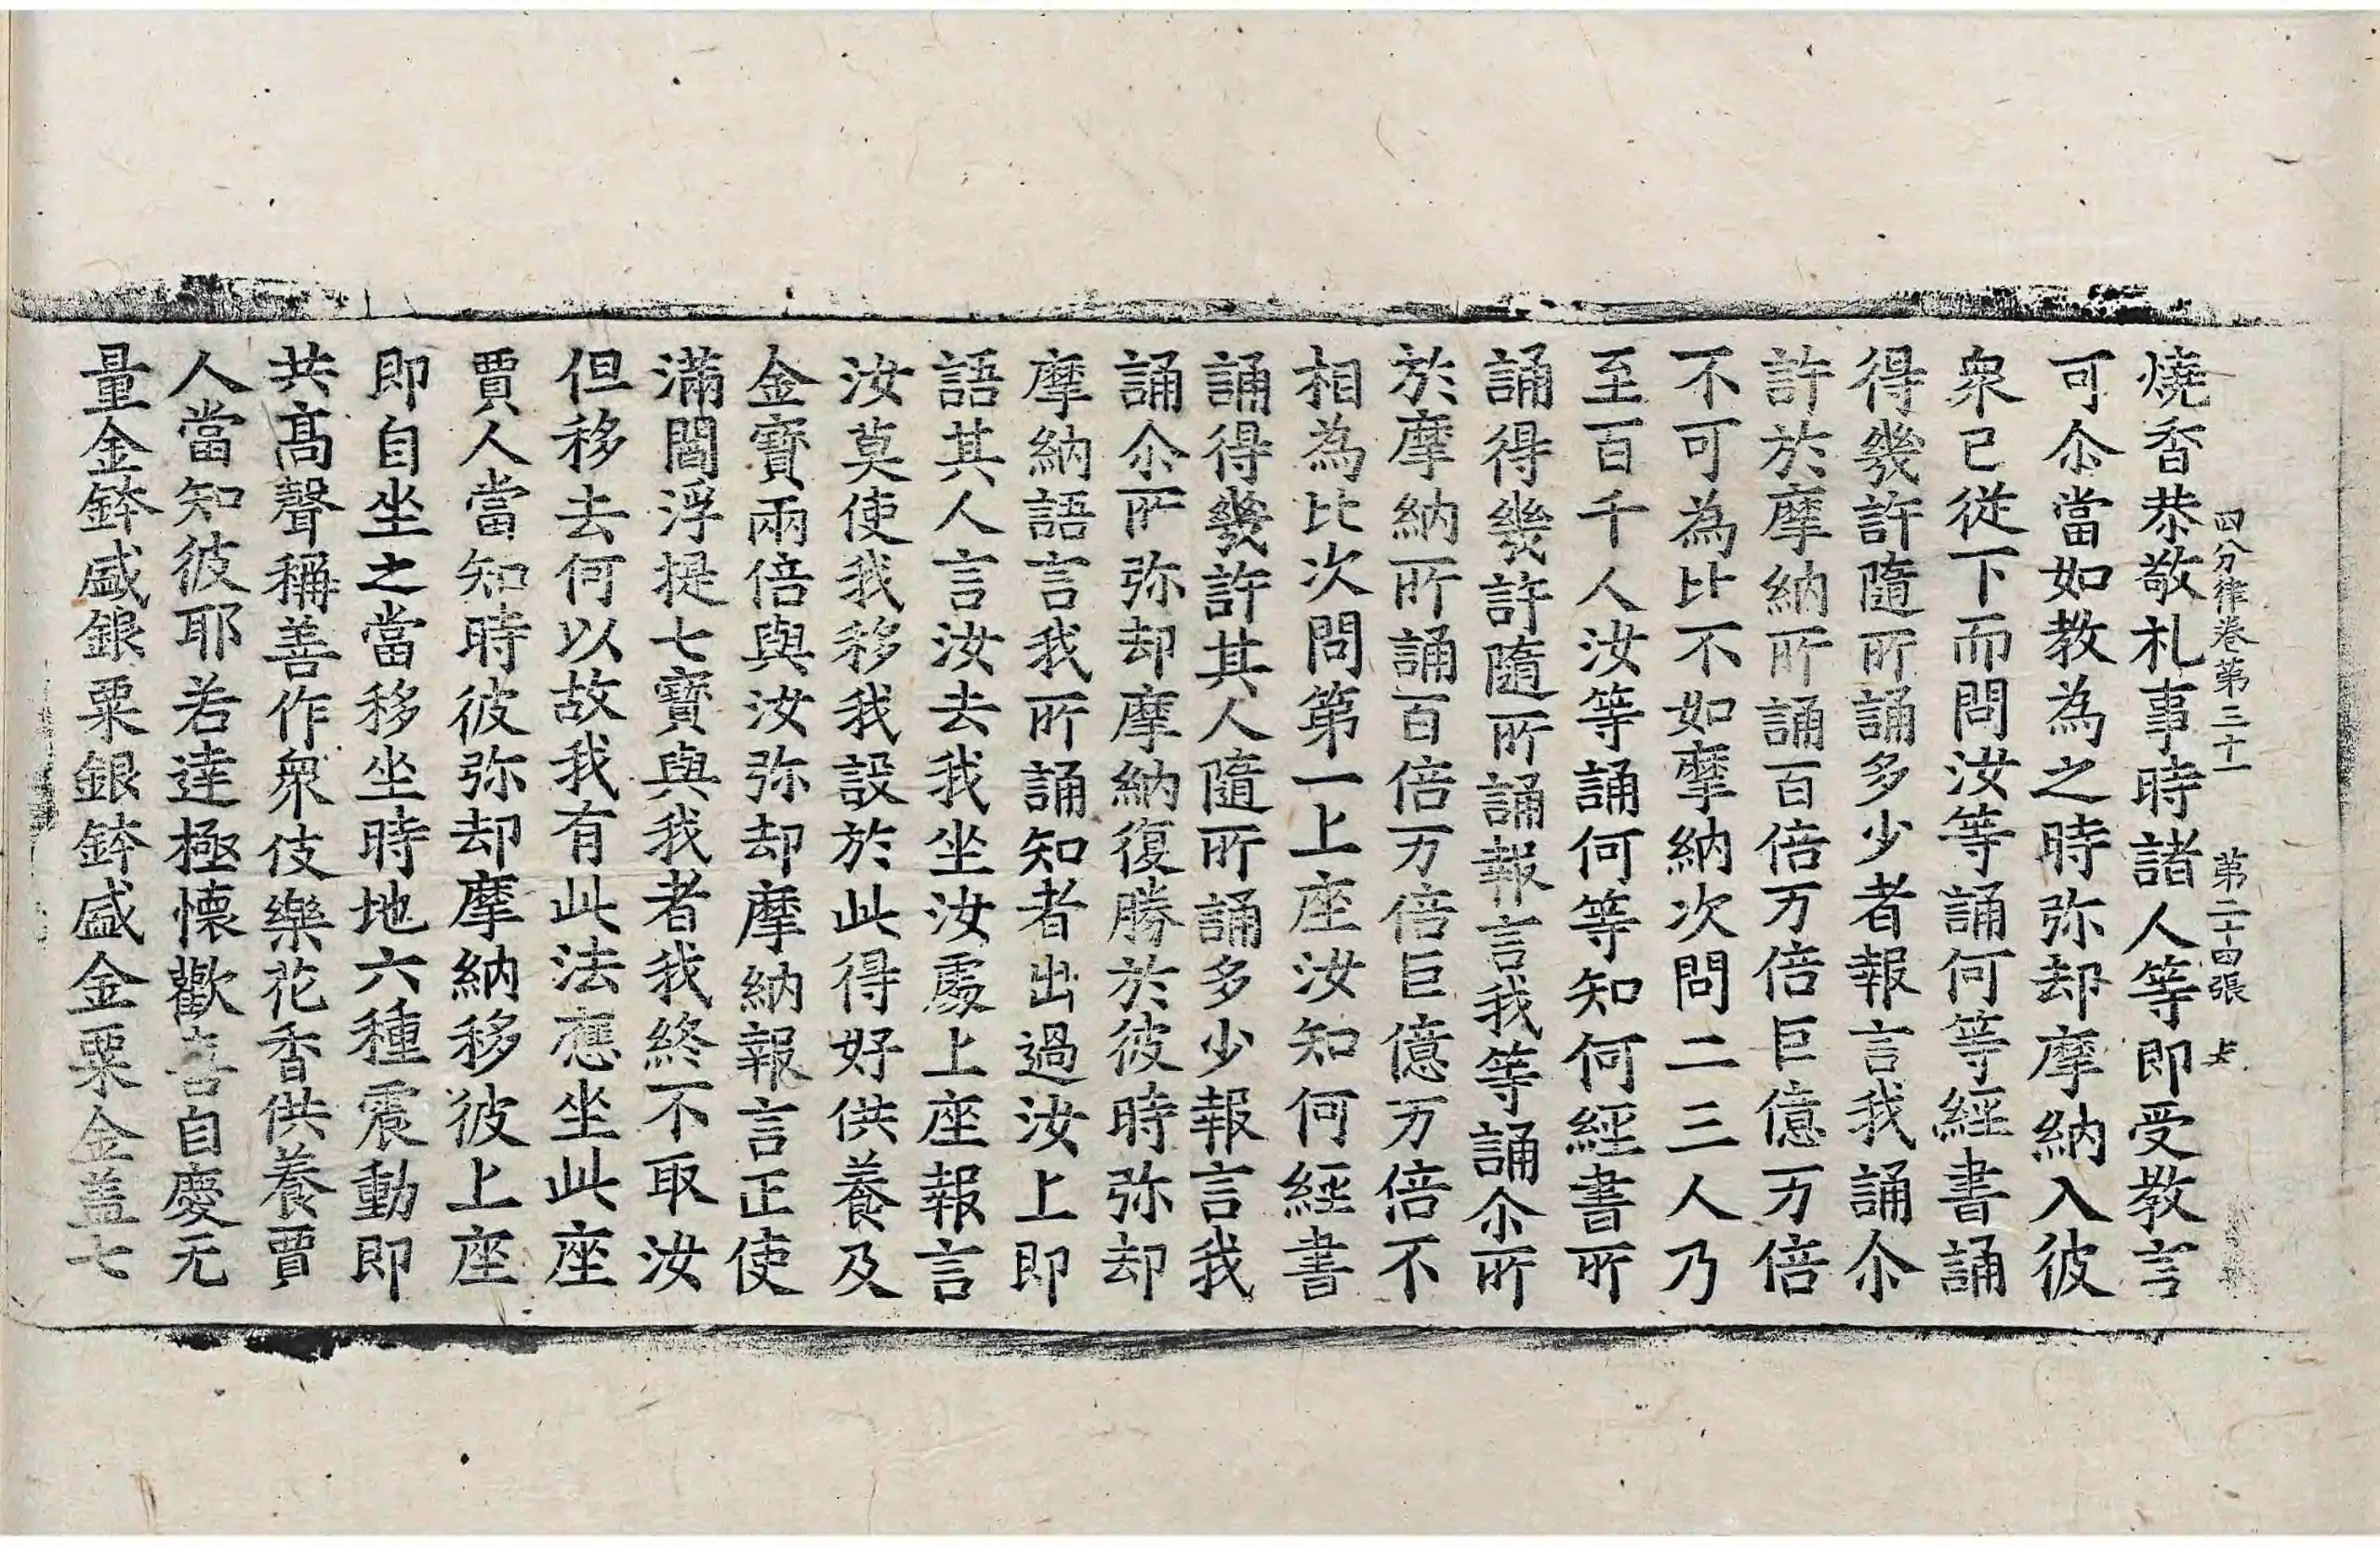 四分律卷第三十一　第二十四張　夫
燒香恭敬札事時諸人等即受教言
可尒當如教為之時弥却摩納入彼
衆已從下而問汝等誦何等經書誦
得幾許隨所誦多少者報言我誦尒
許於摩納所誦百倍万倍巨億万倍
不可為比不如摩納次問二三人乃
至百千人汝等誦何等知何經書所
誦得幾許隨所誦報言我等誦尒所
於摩納所誦百倍万倍巨億万倍不
相為比次問第一上座汝知何經書
誦得幾許其人隨所誦多少報言我
誦尒所弥却摩納復勝於彼時弥却
摩納語言我所誦知者出過汝上即
語其人言汝去我坐汝處上座報言
汝莫使我移我設於此得好供養及
金寶兩倍與汝弥却摩納報言正使
滿閻浮提七寶與我者我終不取汝
但移去何以故我有此法應坐此座
賈人當知時彼弥却摩納移彼上座
即自坐之當移坐時地六種震動即
共髙聲稱善作衆伎樂花香供養賈
人當知彼耶若達極懷歡喜自慶无
量金鉢盛銀粟銀鉢盛金粟金蓋七